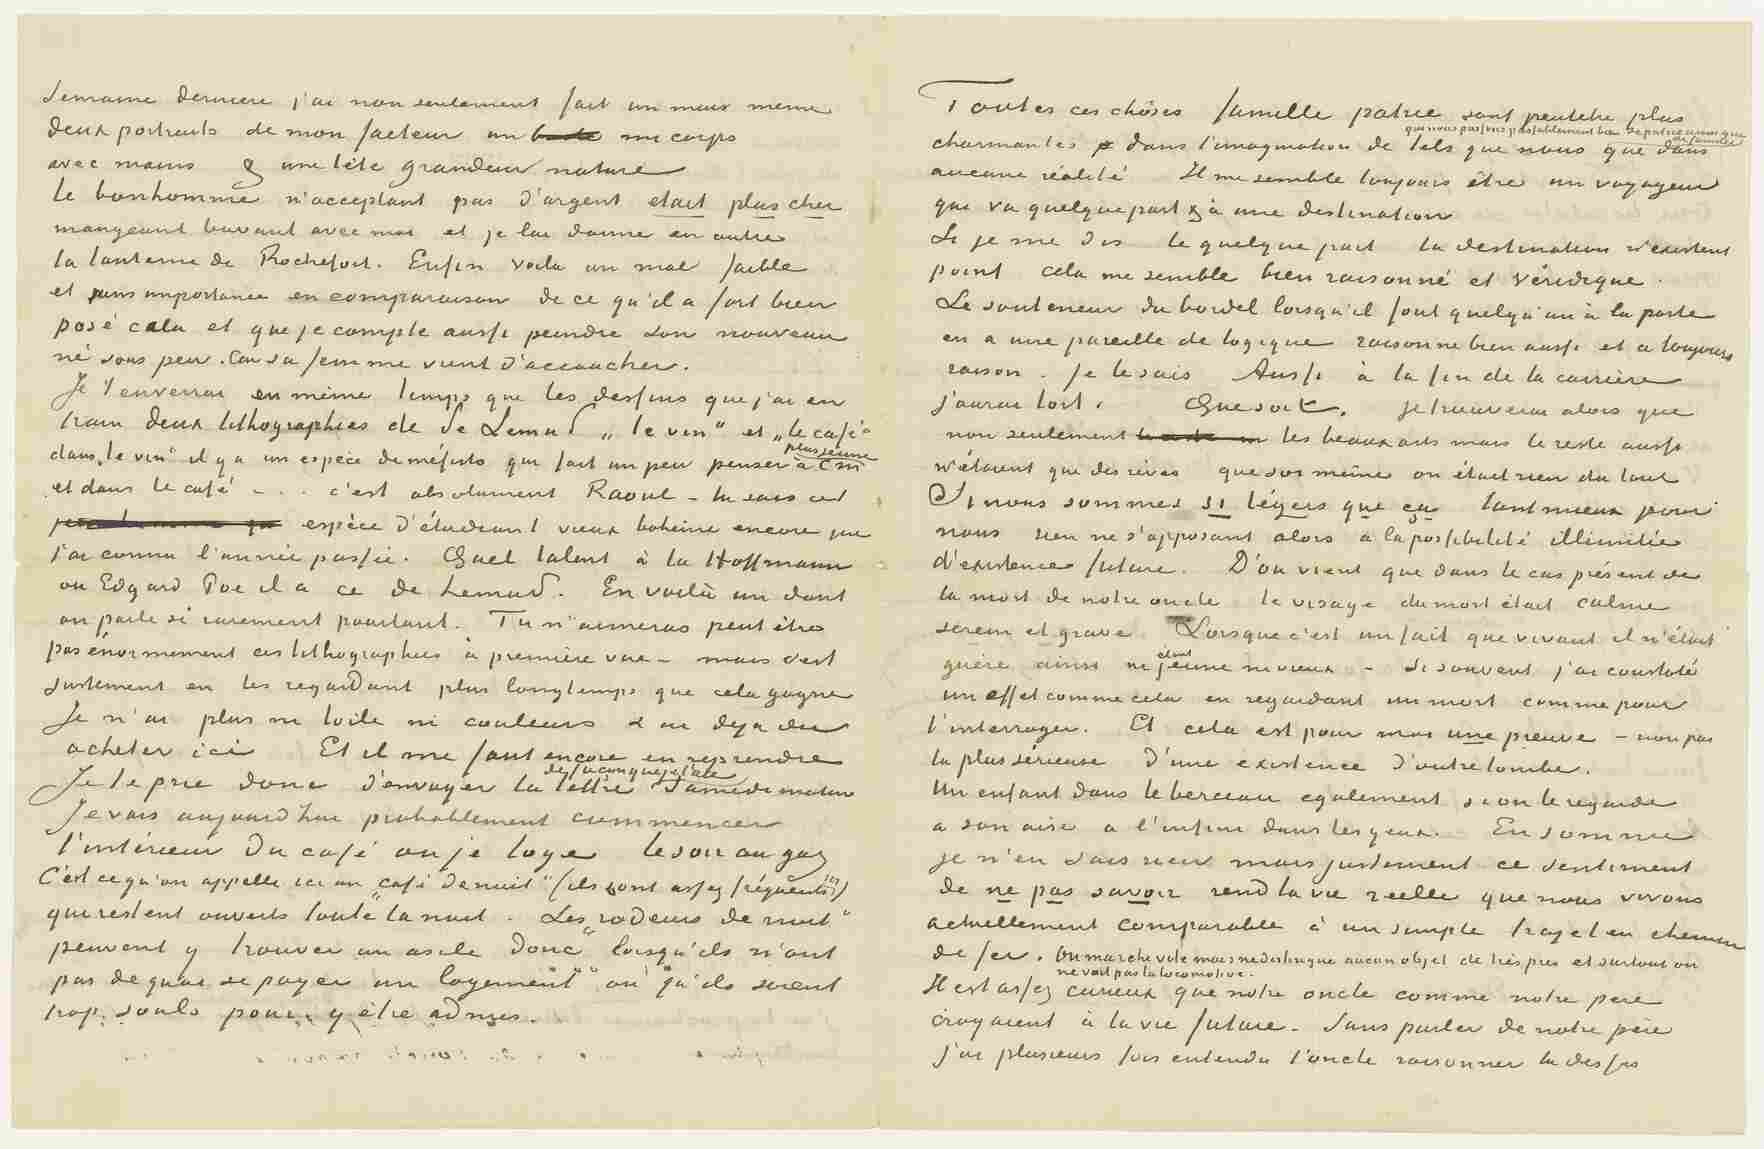 Semaine dernière j'ai non seulement fait un mais même
deux portraits de mon facteur un mi corps
avec mains & une tête grandeur nature
Le bonhomme n'acceptant pas d'argent etait plus cher
mangeant buvant avec moi et je lui donne en outre
la lanterne de Rochefort. Enfin voila un mal faible
et sans importance en comparaison de ce qu'il a fort bien
posé cela et que je compte aussi peindre son nouveau
né sous peu. Car sa femme vient d'accoucher.
Je t'enverrai en même temps que les dessins que j'ai en
train deux lithographies de de Lemud „le vin” et „le café”
dans „le vin” il y a un espèce de méfisto qui fait un peu penser à C.M
plus jeune
et dans le café - . . c'est absolument Raoul - tu sais cet
espèce d'étudiant vieux bohême encore que
j'ai connu l'année passée. Quel talent à la Hoffmann
ou Edgard Poe il a ce de Lemud. En voilà un dont
on parle si rarement pourtant. Tu n'aimeras peut être
pas énormement ces lithographies à première vue - mais c'est
justement en les regardant plus longtemps que cela gagne
Je n'ai plus ni toile ni couleurs & ai deja du
acheter ici Et il me faut encore en reprendre
Je te prie donc d'envoyer ta lettre
de façon que je l'aie
Samedi matin
Je vais aujourd'hui probablement commencer
l'intérieur du café où je loge le soir au gaz
C'est ce qu'on appelle ici un „café de nuit” (ils sont assez fréquents ici)
qui restent ouverts toute la nuit. Les „rodeurs de nuit”
peuvent y trouver un asile donc „lorsqu'ils n'ont
pas de quoi se payer un logement” ou qu'ils soient
trop soûls pour y être admis.
Toutes ces chôses famille patrie sont peutetre plus
charmantes dans l'imagination de tels que nous
qui nous passons passablement bien de patrie ainsi que
de famille
que dans
aucune réalité Il me semble toujours être un voyageur
qui va quelque part & à une destination
Si je me dis le quelque part la destination n'existent
point cela me semble bien raisonné et véridique.
Le souteneur du bordel lorsqu'il fout quelqu'un à la porte
en a une pareille de logique raisonne bien aussi et a toujours
raison. Je le sais Aussi à la fin de la carrière
j'aurai tort. Que soit. Je trouverai alors que
non seulement les beaux arts mais le reste aussi
n'étaient que des rêves que soi même on était rien du tout
Si nous sommes si légers que ça tant mieux pour
nous rien ne s'opposant alors à la possibilité illimitée
d'existence future. D'où vient que dans le cas présent de
la mort de notre oncle le visage du mort était calme
serein et grave Lorsque c'est un fait que vivant il n'était
guère ainsi ni étant jeune ni vieux - Si souvent j'ai constaté
un effet comme cela en regardant un mort comme pour
l'interroger. Et cela est pour moi une preuve - non pas
la plus sérieuse d'une existence d'outre tombe.
Un enfant dans le berceau egalement si on le regarde
a son aise a l'infini dans les yeux. En somme
je n'en sais rien mais justement ce sentiment
de ne pas savoir rend la vie réelle que nous vivons
actuellement comparable à un simple trajet en chemin
de fer. On marche vite mais ne distingue aucun objet de très près et surtout on
ne voit pas la locomotive.
Il est assez curieux que notre oncle comme notre père
croyaient à la vie future. Sans parler de notre père
j'ai plusieurs fois entendu l'oncle raisonner la dessus